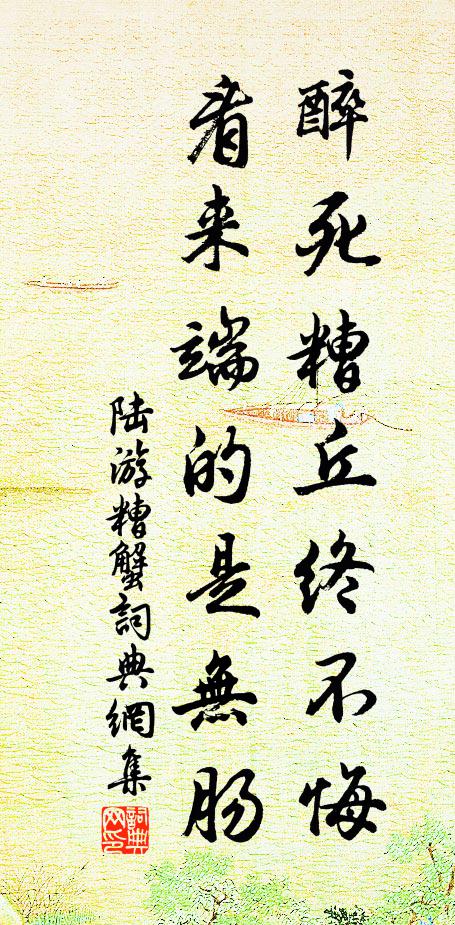 醉死糟丘终不悔
看来端的是無肠
陆游糟蟹詞典網集
詞典网印